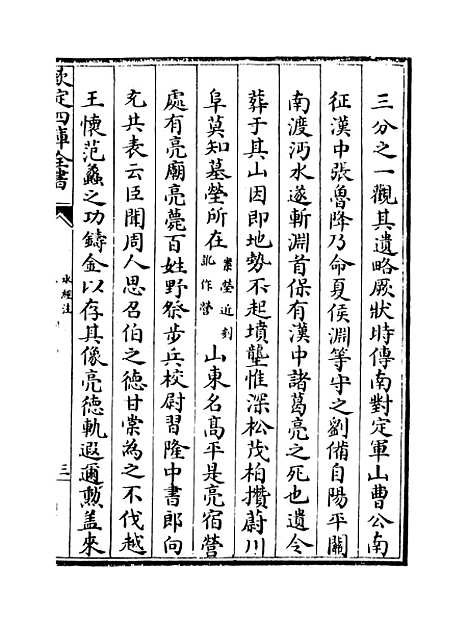 三分之一觀其遺略厥狀時傳南對定軍山曹公南
征漢中張魯降乃命夏侯淵等守之劉備自陽平關
南渡沔水遂斬淵首保有漢中諸葛亮之死也遺令
葬于其山因即地勢不起墳壟惟深松茂柏攢蔚川
阜莫知墓塋所在案塋近刻訛作營山東名高平是亮宿營
處有亮廟亮薨百姓野祭步兵校尉習隆中書郎向
充共表云臣聞周人思召伯之德甘棠為之不伐越
王懷范蠡之功鑄金以存其像亮德軌遐邇勲盖来
欽定四庫全書
水經注
三